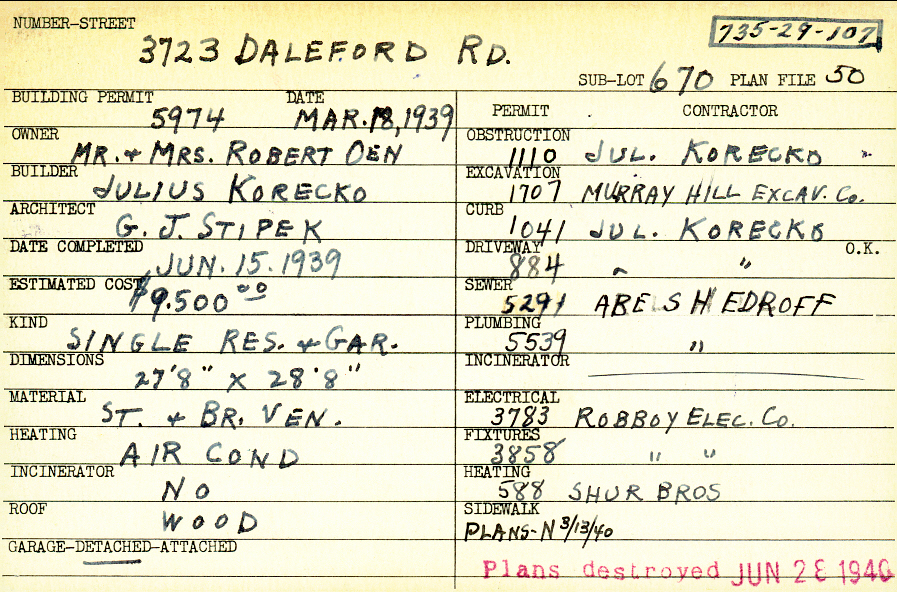 NUMBER-STREET
3723 DALEFORD RD.
735-29-107
SUB-LOT 670 PLAN FILE 50
BUILDING PERMIT DATE
5974 MAR. 18, 1939
OWNER
MR. & MRS. ROBERT OEN
BUILDER
JULIUS KORECKO
ARCHITECT
G. J. STIPEK
DATE COMPLETED
JUN. 15. 1939
ESTIMATED COST
$9.500 00
KIND
SINGLE RES. & GAR.
DIMENSIONS
27'8" X 28'8"
MATERIAL
ST. & BR. VEN.
HEATING
AIR COND
INCINERATOR
NO
ROOF
WOOD
GARAGE-DETACHED-ATTACHED
PERMIT CONTRACTOR
OBSTRUCTION
1110 JUL. KORECKO
EXCAVATION
1707 MURRAY HILL EXCAV. Co.
CURB
1041 JUL. KORECKO
DRIVEWAY O.K.
884 "
SEWER
5291 ABE SHEDROFF
PLUMBING
5539 "
INCINERATOR
ELECTRICAL
3783 ROBBOY ELEC. Co.
FIXTURES
3858 " "
HEATING
588 SHUR BROS
SIDEWALK
PLANS-N 3/13/40
Plans destroyed JUN 28 1940